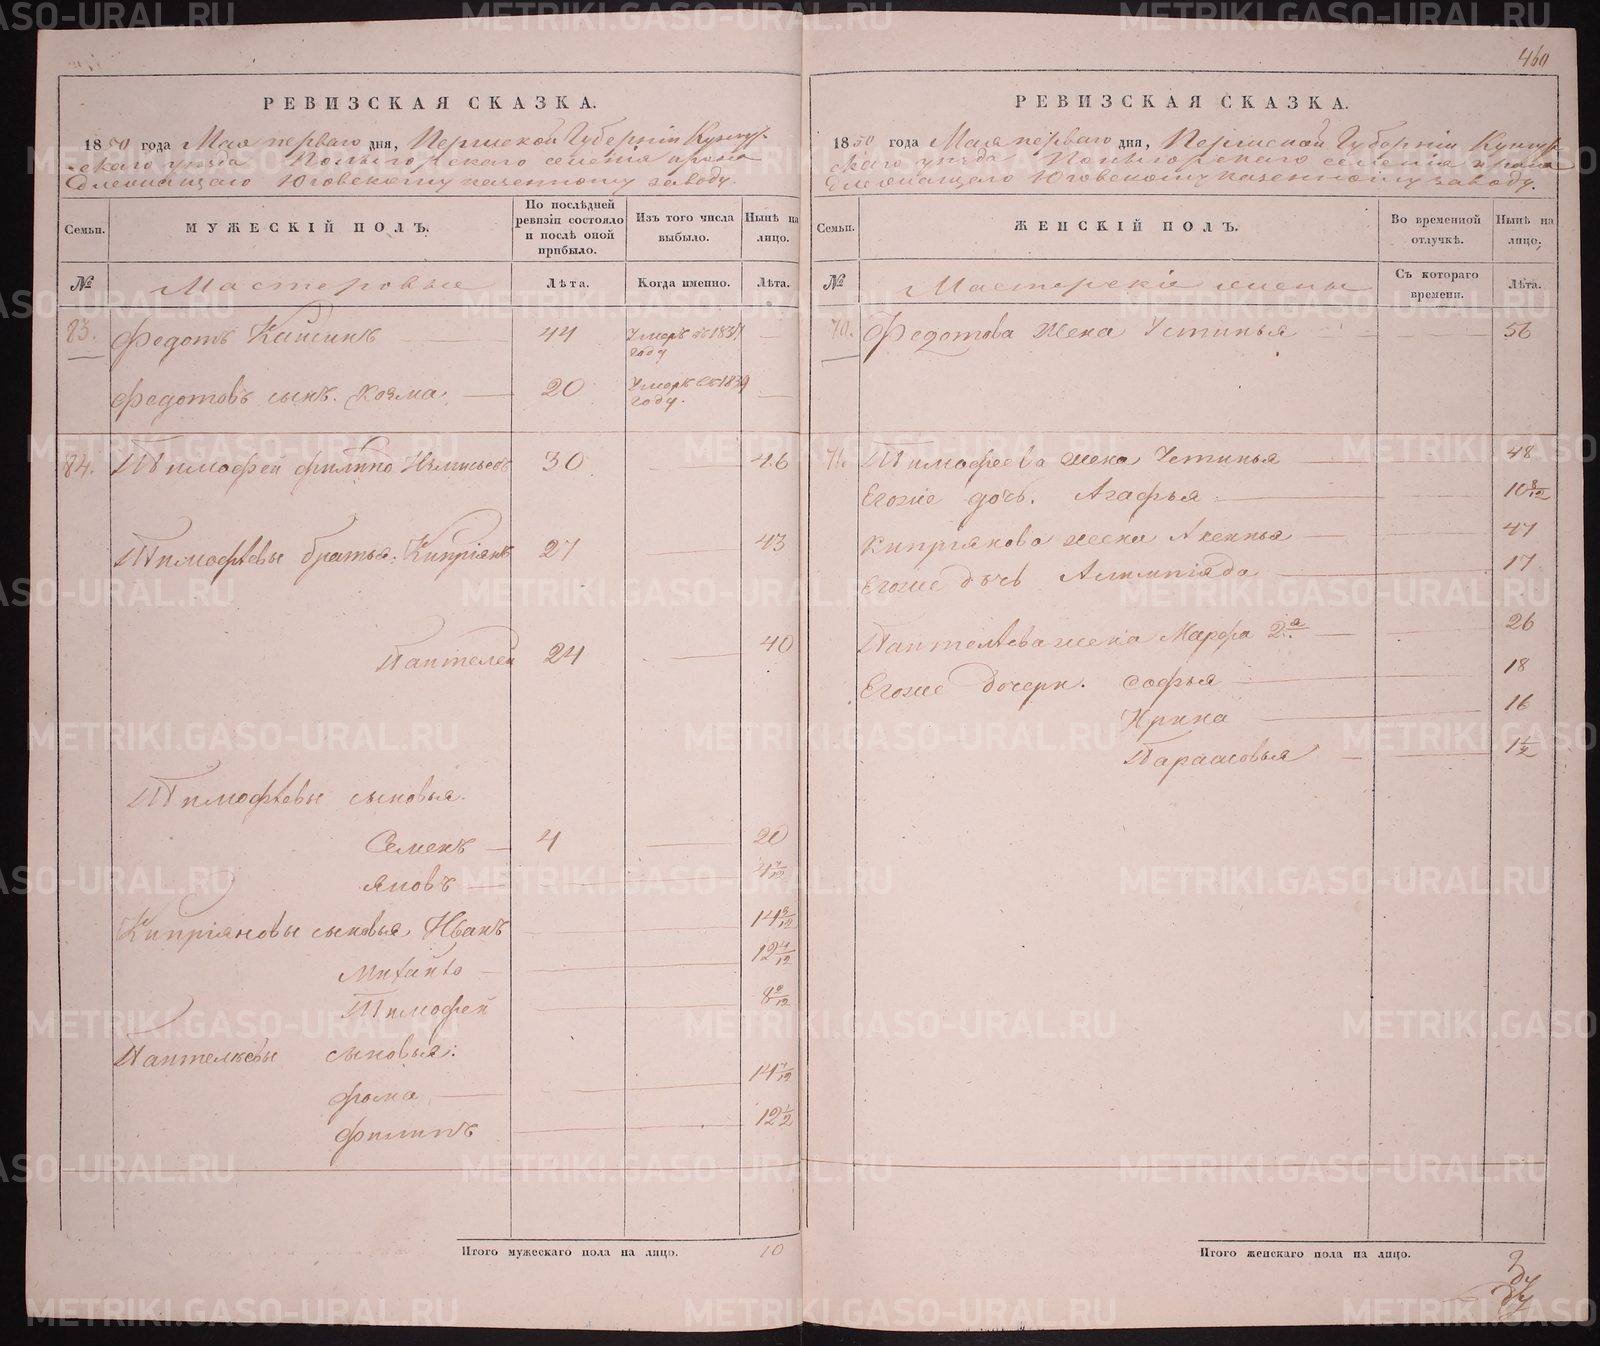 460
РЕВИЗСКАЯ СКАЗКА.
1850 года Мая перваго дня, Пермской Губернiи Кунгур-
скаго уезда селенiя
Юговскому казенному заводу.
Семьи.
МУЖЕСКIЙ ПОЛЪ.
По послѣдней ревизiи состояло и послѣ оной прибыло.
Изъ того числа выбыло.
Нынѣ на лицо.
№
Мастеровые
Лѣта.
Когда именно.
Лѣта.
83. Федотъ 44 Умеръ въ 183 году
Федотовъ сынъ. Козма 20 Умеръ въ 1839 году.
84. Тимофей 30 46
Тимофѣевы братья: Кипрiянъ 27 43
Пантелей 24 40
Тимофѣевы сыновья.
Семенъ 4 20
Яковъ 4 7/12
Кипрiяновы сыновья Иванъ 14 8/12
Михайло 12 4/12
Тимофей 8 2/12
Пантелѣевы сыновья:
Фома 14 7/12
Филипъ 12 1/2
Итого мужескаго пола на лицо. 10
РЕВИЗСКАЯ СКАЗКА.
1850 года Мая перваго дня, Пермской Губернiи Кунгур-
скаго уезда селенiя
Юговскому казенному заводу.
Семьи.
ЖЕНСКIЙ ПОЛЪ.
Во временной отлучкѣ.
Нынѣ на лицо,
№
Мастерскiе жены
Съ котораго времени.
Лѣта.
70. Федотова жена Устинья 56
71. Тимофеева жена Устинья 48
Егоже дочь. Агафья 10 8/12
Кипрiянова жена Аксинья 47
Егоже дочь Алимпiяда 17
Пантелѣева жена Марфа 2я 26
Егоже дочери. Софья 18
Ирина 16
Парасковья 1 1/2
Итого женскаго пола на лицо.
METRIKI.GASO-URAL.RU